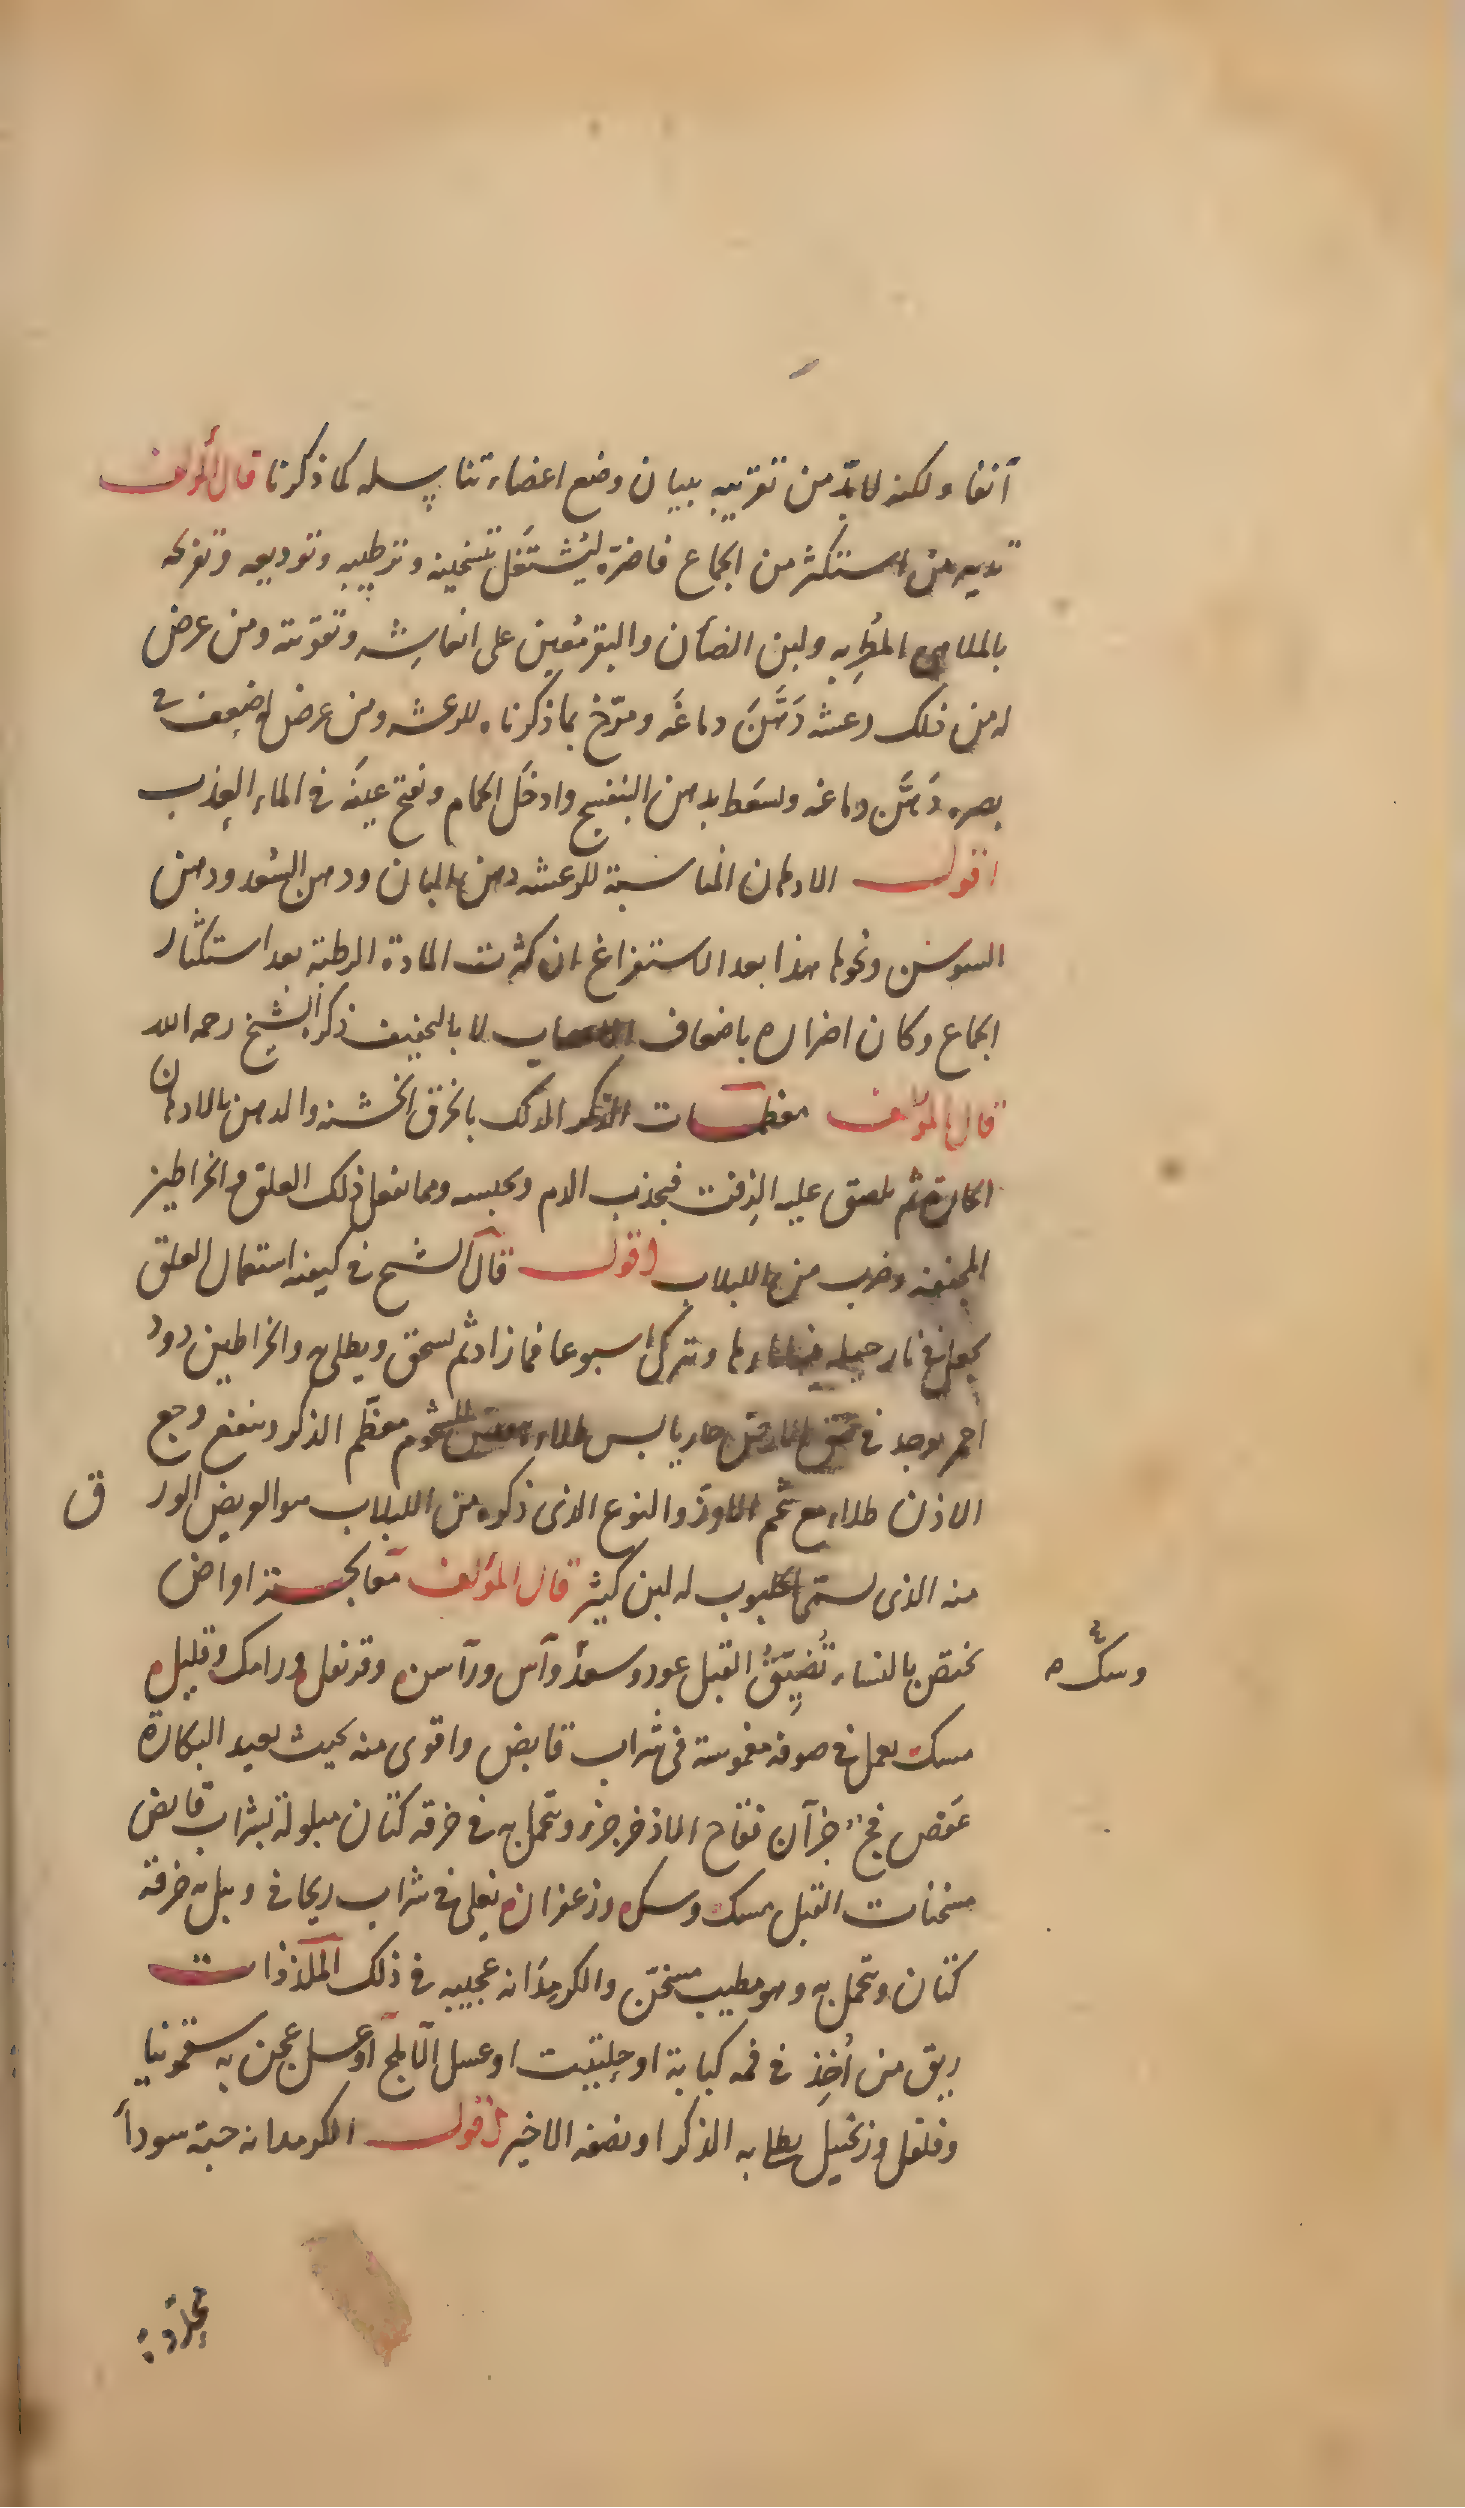 آنفا ولكنه لابدّ من تقريبه ببيان وضع اعضاء تناسله كما ذكرنا قال المؤلف
تدبير من استكثر من الجماع فاضرّه ليُشتغَل بتسخينه وترطيبه وتوديعه وتفرحه
بالملاهى المُطرِبه ولبن الضأن والبقر مُعين على انعاشه وتقوّيته ومن عرض
له من ذلك رعشه دَهَّنَ دماغَه ومرّخ بما ذكرناه للرعشه ومن عرض له ضعف فى
بصره دَهَّن دماغه وسعَط بدهن البنفسج وادخل الحمام وفتح عينَه فى الماء العذب
اقول الادهان المناسبة للرعشه دهن البان ودهن السُعد ودهن
السوسن ونحوها هذا بعد الاستفراغ ان كثرت المادة الرطبة بعد استكثار
الجماع وكان اضراره باضعاف الاعصاب لا بالتجفيف ذكره الشيخ رحمه الله
قال المؤلف معظمات الذكر الدلك بالخرق الخشنه والدهن بالادهان
الحارة ثم يلصق عليه الزفت فيجذب الدم ويحبسه ومما يفعل ذلك العلق والخراطين
المجففه وضرب من اللبلاب اقول قال الشيخ فى كيفيه استعمال العلق
يجعل فى نارجيله فيها ماءها وتترك اسبوعا فما زاد ثم يسحق ويطلى به والخراطين دود
احمر يوجد فى عمق حار يابس طلاء معظّم الذكر وينفع وجع
الاذن طلاء مع شحم الاوزّ والنوع الذى ذكره من اللبلاب هو العريض الورق
منه الذى يسمّى له لبن كثير قال المؤلف معالجة امراض
تختص بالنساء تُضيِّقُ القبل عود وسعد وآس ورآسن وقرنفل ورامك وقليل
وسك
مسك يعمل فى صوفه مغموسة فى شراب قابض واقوى منه بحيث يعيد البكارة
عَفص فج جزآن فقاح الاذخر جزء ويتحمل به فى خرقه كتان مبلولة بشراب قابض
مسخنات القبل مسك وسك وزعفران يغلى فى شراب ريحانى ويبل به خرقة
كتان ويتحمل به وهو مطيب مسخن والكرمدانه عجيبه فى ذلك الملذذات
ريق من أُخِذ فى فمه كبابة او حِلِتيت او عسل الاملج او عسل عجن به سقمونيا
وفلفل وزنجبيل يطلا به الذكر او نصفه الاخير اقول الكرمدانه حبّة سودآ